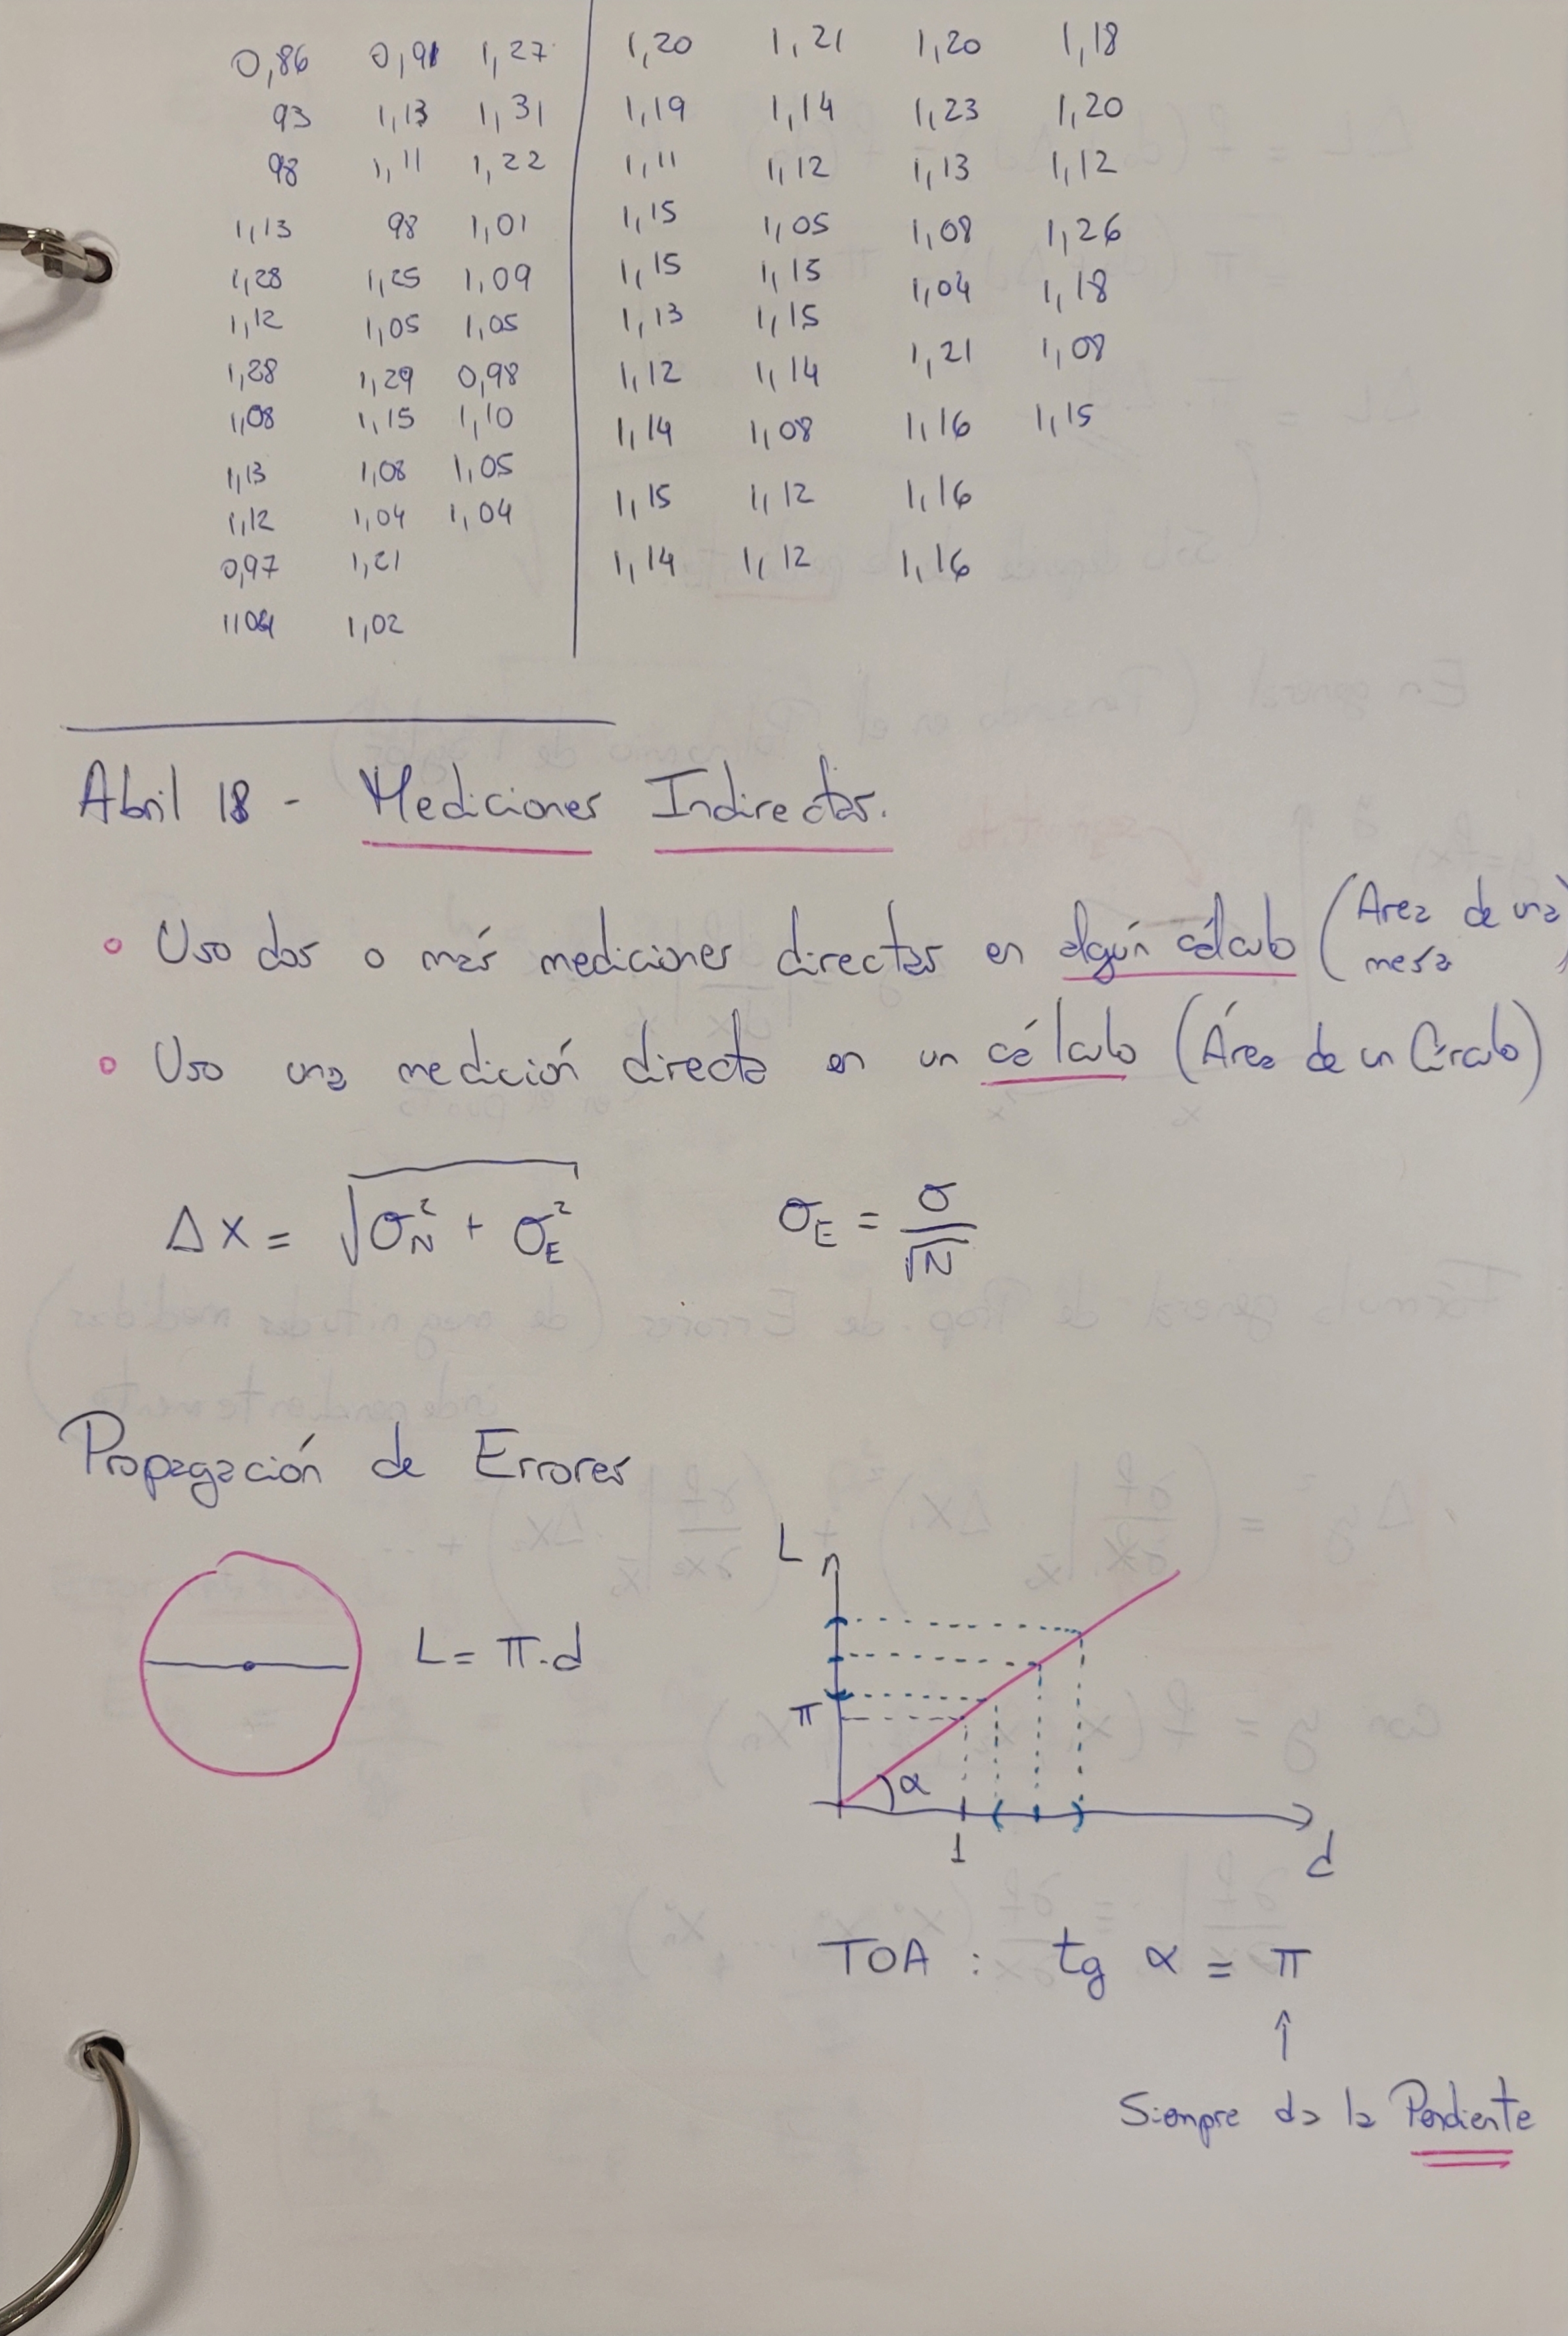 0,86 0,91 1,27 1,20 1,21 1,20 1,18
93 1,13 1,31 1,19 1,14 1,23 1,20
98 1,11 1,22 1,11 1,12 1,13 1,12
1,13 98 1,01 1,15 1,05 1,08 1,26
1,28 1,25 1,09 1,15 1,15 1,04 1,18
1,12 1,05 1,05 1,13 1,15 1,21 1,08
1,28 1,29 0,98 1,12 1,14
1,08 1,15 1,10 1,14 1,08 1,16 1,15
1,13 1,08 1,05
1,12 1,04 1,04 1,15 1,12 1,16
0,97 1,21 1,14 1,12 1,16
1,02
Abril 18 - Mediciones Indirectas.
• Uso dos o más mediciones directas en algún cálculo (Area de una mesa)
• Uso una medición directa en un cálculo (Área de un Círculo)
Δx = √(σ_N² + σ_E²) σ_E = σ/√N
Propagación de Errores
L
L = π.d
π
α
1
d
TOA : tg α = π
↑
Siempre da la Pendiente